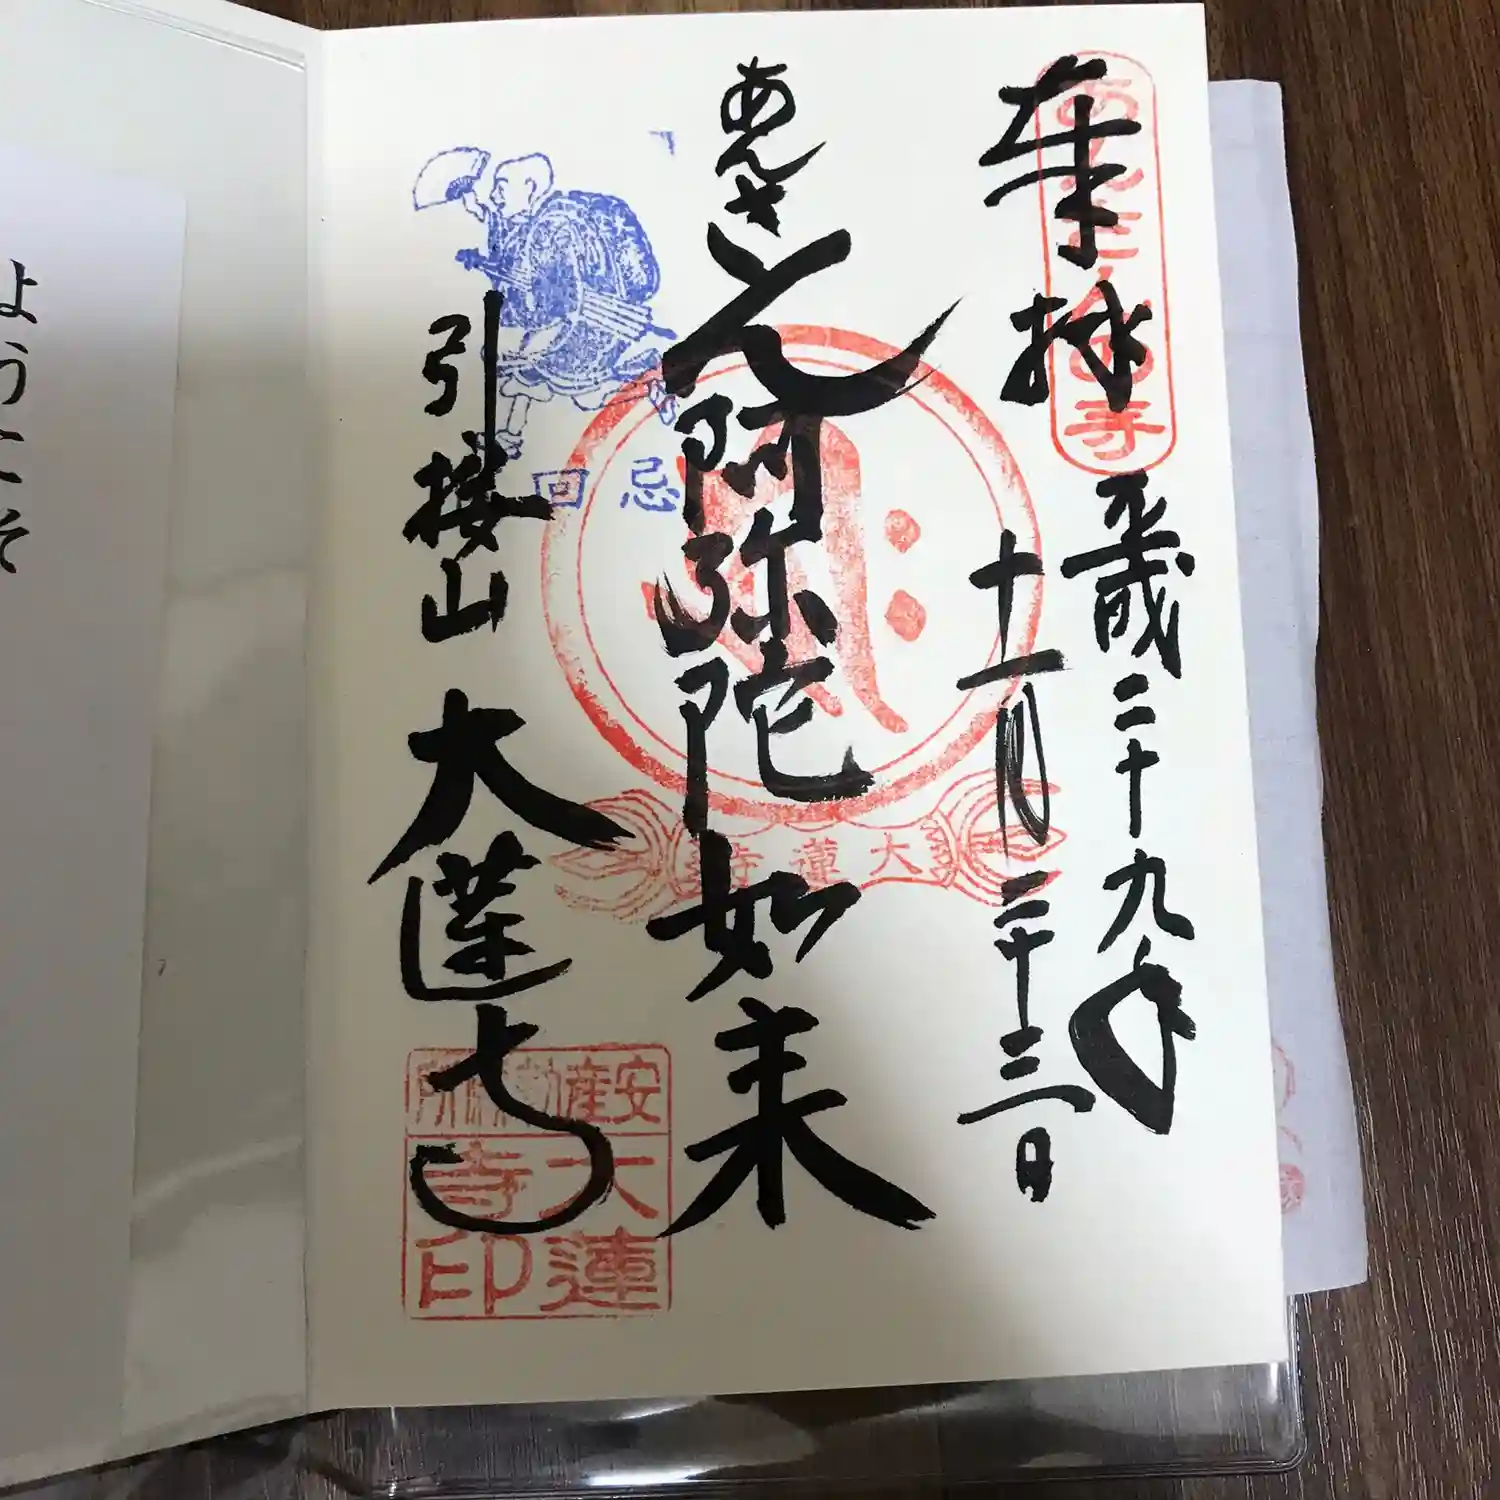 奉拝
平成二十九年
十一月二十三日
あんざん
阿弥陀如来
引接山
大蓮寺
忌
回
大蓮寺
安産勅願所
大蓮寺印
ようこそ